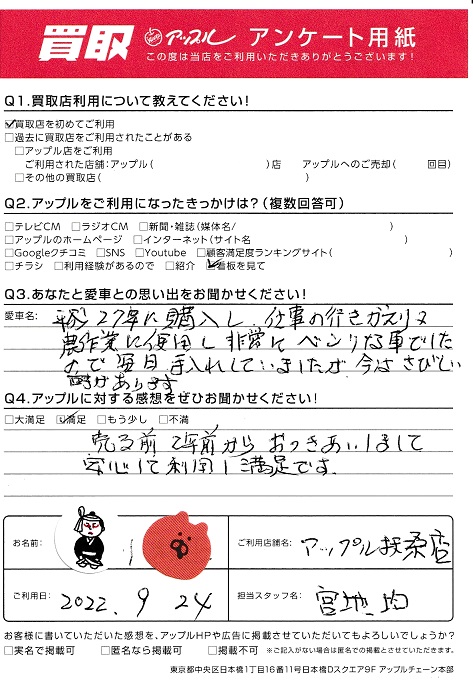 買取 アップル アンケート用紙
この度は当店をご利用いただきありがとうございます!
Q1.買取店利用について教えてください!
☑買取店を初めてご利用
□過去に買取店をご利用されたことがある
□アップル店をご利用
ご利用された店舗:アップル( )店 アップルへのご売却( 回目)
□その他の買取店( )
Q2.アップルをご利用になったきっかけは?(複数回答可)
□テレビCM □ラジオCM □新聞・雑誌(媒体名/ )
□アップルのホームページ □インターネット(サイト名 )
□Googleクチコミ □SNS □Youtube □顧客満足度ランキングサイト( )
□チラシ □利用経験があるので □紹介 ☑看板を見て
Q3.あなたと愛車との思い出をお聞かせください!
愛車名: 平成27年に購入し 仕事の行きがえりや
農作業に使用し非常にベンリな車でした
ので毎日手入れしていましたが 今はさびしい
時があります
Q4.アップルに対する感想をぜひお聞かせください!
□大満足 ☑満足 □もう少し □不満
売る前 2年前からおつきあいしまして
安心して利用し満足です.
お名前: ご利用店舗名: アップル扶桑店
ご利用日: 2022. 9 24 担当スタッフ名: 宮地 均
お客様に書いていただいた感想を、アップルHPや広告に掲載させていただいてもよろしいでしょうか?
□実名で掲載可 □匿名なら掲載可 □掲載不可 ※ご記入がない場合は匿名での掲載とさせていただきます。
東京都中央区日本橋1丁目16番11号日本橋Dスクエア9F アップルチェーン本部